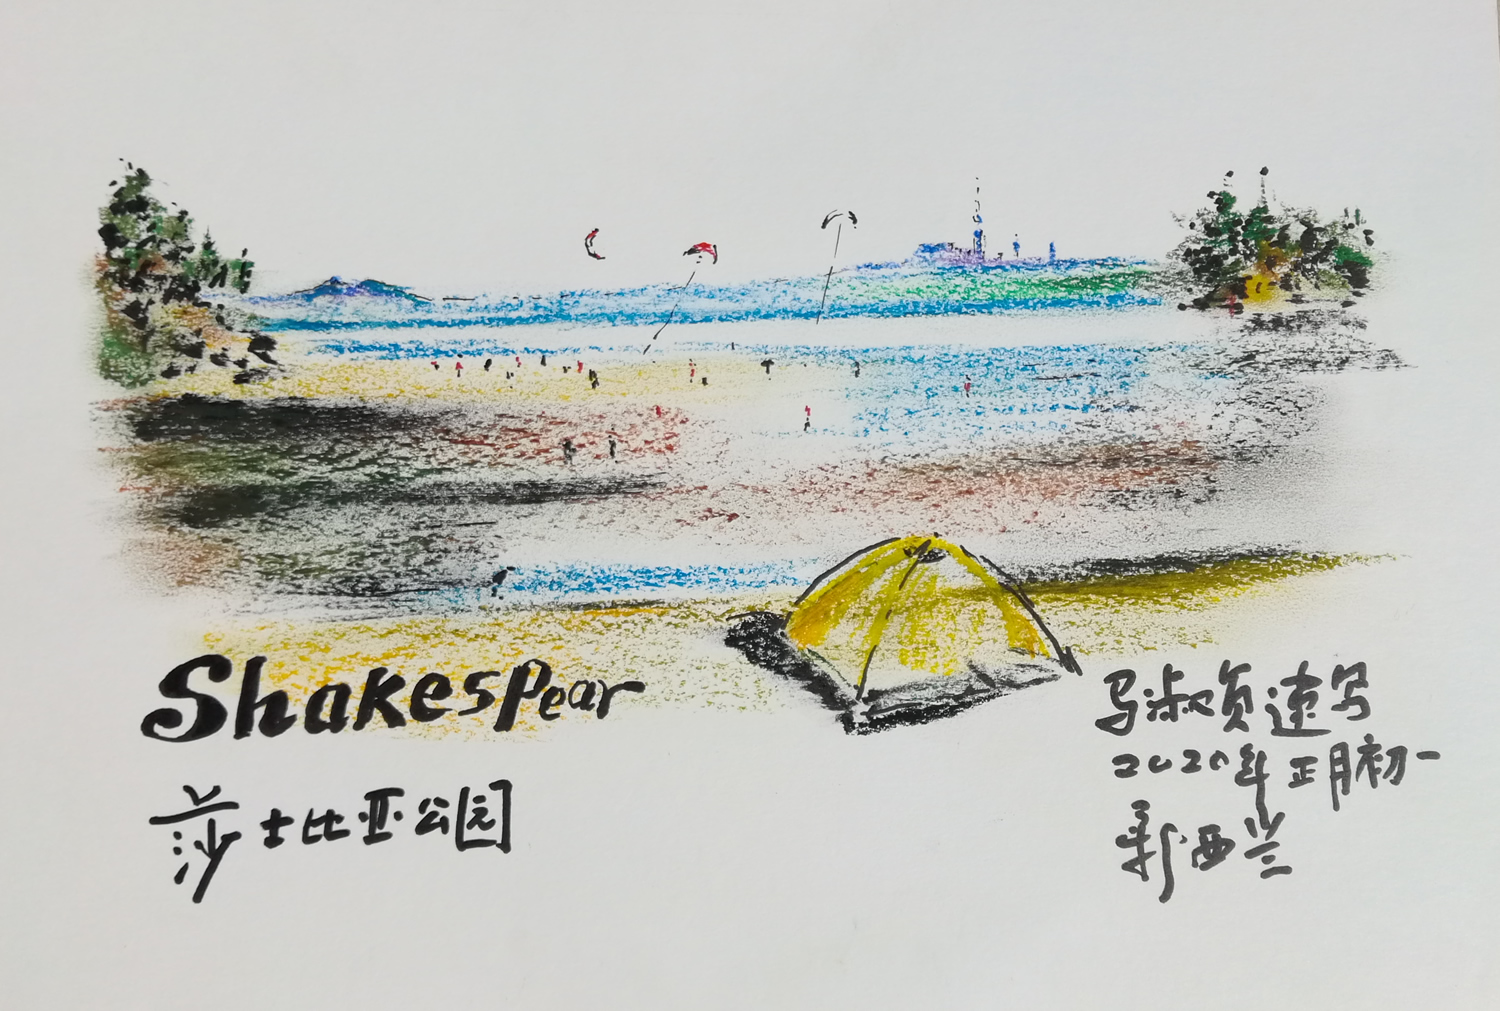 Shakespear
莎士比亚公园
马淑贞速写
2020年正月初一
新西兰